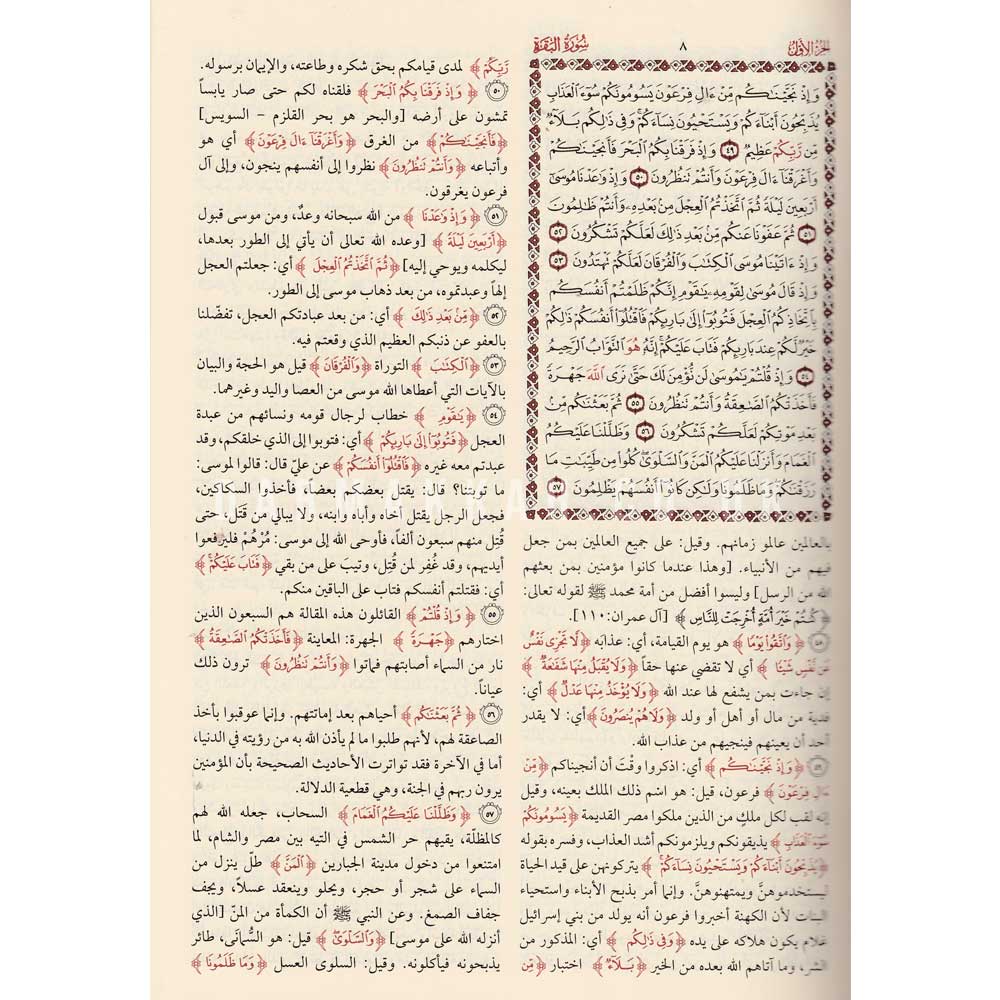 الجزء الأول
٨
سورة البقرة
وَإِذْ نَجَّيْنَٰكُم مِّنْ ءَالِ فِرْعَوْنَ يَسُومُونَكُمْ سُوٓءَ ٱلْعَذَابِ
يُذَبِّحُونَ أَبْنَآءَكُمْ وَيَسْتَحْيُونَ نِسَآءَكُمْ ۚ وَفِى ذَٰلِكُم بَلَآءٌ
مِّن رَّبِّكُمْ عَظِيمٌ ٤٩ وَإِذْ فَرَقْنَا بِكُمُ ٱلْبَحْرَ فَأَنجَيْنَٰكُمْ
وَأَغْرَقْنَآ ءَالَ فِرْعَوْنَ وَأَنتُمْ تَنظُرُونَ ٥٠ وَإِذْ وَٰعَدْنَا مُوسَىٰٓ
أَرْبَعِينَ لَيْلَةً ثُمَّ ٱتَّخَذْتُمُ ٱلْعِجْلَ مِنۢ بَعْدِهِۦ وَأَنتُمْ ظَٰلِمُونَ
٥١ ثُمَّ عَفَوْنَا عَنكُم مِّنۢ بَعْدِ ذَٰلِكَ لَعَلَّكُمْ تَشْكُرُونَ ٥٢
وَإِذْ ءَاتَيْنَا مُوسَى ٱلْكِتَٰبَ وَٱلْفُرْقَانَ لَعَلَّكُمْ تَهْتَدُونَ ٥٣
وَإِذْ قَالَ مُوسَىٰ لِقَوْمِهِۦ يَٰقَوْمِ إِنَّكُمْ ظَلَمْتُمْ أَنفُسَكُم
بِٱتِّخَاذِكُمُ ٱلْعِجْلَ فَتُوبُوٓا۟ إِلَىٰ بَارِئِكُمْ فَٱقْتُلُوٓا۟ أَنفُسَكُمْ ذَٰلِكُمْ
خَيْرٌ لَّكُمْ عِندَ بَارِئِكُمْ فَتَابَ عَلَيْكُمْ ۚ إِنَّهُۥ هُوَ ٱلتَّوَّابُ ٱلرَّحِيمُ
٥٤ وَإِذْ قُلْتُمْ يَٰمُوسَىٰ لَن نُّؤْمِنَ لَكَ حَتَّىٰ نَرَى ٱللَّهَ جَهْرَةً
فَأَخَذَتْكُمُ ٱلصَّٰعِقَةُ وَأَنتُمْ تَنظُرُونَ ٥٥ ثُمَّ بَعَثْنَٰكُم مِّنۢ
بَعْدِ مَوْتِكُمْ لَعَلَّكُمْ تَشْكُرُونَ ٥٦ وَظَلَّلْنَا عَلَيْكُمُ
ٱلْغَمَامَ وَأَنزَلْنَا عَلَيْكُمُ ٱلْمَنَّ وَٱلسَّلْوَىٰ ۖ كُلُوا۟ مِن طَيِّبَٰتِ مَا
رَزَقْنَٰكُمْ ۖ وَمَا ظَلَمُونَا وَلَٰكِن كَانُوٓا۟ أَنفُسَهُمْ يَظْلِمُونَ ٥٧
بالعالمين عالمو زمانهم. وقيل: على جميع العالمين بمن جعل
فيهم من الأنبياء. [وهذا عندما كانوا مؤمنين بمن بعثهم
الله من الرسل] وليسوا أفضل من أمة محمد ﷺ لقوله تعالى:
﴿كُنتُمْ خَيْرَ أُمَّةٍ أُخْرِجَتْ لِلنَّاسِ﴾ [آل عمران: ١١٠].
٤٨ ﴿وَٱتَّقُوا۟ يَوْمًا﴾ هو يوم القيامة، أي: عذابه ﴿لَّا تَجْزِى نَفْسٌ
عَن نَّفْسٍ شَيْـًٔا﴾ أي لا تقضي عنها حقاً ﴿وَلَا يُقْبَلُ مِنْهَا شَفَٰعَةٌ﴾
إن جاءت بمن يشفع لها عند الله ﴿وَلَا يُؤْخَذُ مِنْهَا عَدْلٌ﴾ أي:
فدية من مال أو أهل أو ولد ﴿وَلَا هُمْ يُنصَرُونَ﴾ أي: لا يقدر
أحد أن يعينهم فينجيهم من عذاب الله.
٤٩ ﴿وَإِذْ نَجَّيْنَٰكُم﴾ أي: اذكروا وقْتَ أن أنجيناكم ﴿مِّنْ
ءَالِ فِرْعَوْنَ﴾ فرعون، قيل: هو اسْم ذلك الملك بعينه، وقيل
إنه لقب لكل ملكٍ من الذين ملكوا مصر القديمة ﴿يَسُومُونَكُمْ
سُوٓءَ ٱلْعَذَابِ﴾ يذيقونكم ويلزمونكم أشد العذاب، وفسره بقوله
﴿يُذَبِّحُونَ أَبْنَآءَكُمْ وَيَسْتَحْيُونَ نِسَآءَكُمْ﴾ يتركونهن على قيد الحياة
ليستخدموهنَّ ويمتهنوهنَّ. وإنما أمر بذبح الأبناء واستحياء
البنات لأن الكهنة أخبروا فرعون أنه يولد من بني إسرائيل
غلام يكون هلاكه على يده ﴿وَفِى ذَٰلِكُم﴾ أي: المذكور من
الشر، وما آتاهم الله بعده من الخير ﴿بَلَآءٌ﴾ اختبار ﴿مِّن
رَّبِّكُمْ﴾ لمدى قيامكم بحق شكره وطاعته، والإيمان برسوله.
٥٠ ﴿وَإِذْ فَرَقْنَا بِكُمُ ٱلْبَحْرَ﴾ فلقناه لكم حتى صار يابساً
تمشون على أرضه [والبحر هو بحر القلزم – السويس]
﴿فَأَنجَيْنَٰكُمْ﴾ من الغرق ﴿وَأَغْرَقْنَآ ءَالَ فِرْعَوْنَ﴾ أي هو
وأتباعه ﴿وَأَنتُمْ تَنظُرُونَ﴾ نظروا إلى أنفسهم ينجون، وإلى آل
فرعون يغرقون.
٥١ ﴿وَإِذْ وَٰعَدْنَا﴾ من الله سبحانه وعدٌ، ومن موسى قبول
﴿أَرْبَعِينَ لَيْلَةً﴾ [وعده الله تعالى أن يأتي إلى الطور بعدها،
ليكلمه ويوحي إليه] ﴿ثُمَّ ٱتَّخَذْتُمُ ٱلْعِجْلَ﴾ أي: جعلتم العجل
إلهاً وعبدتموه، من بعد ذهاب موسى إلى الطور.
٥٢ ﴿مِّنۢ بَعْدِ ذَٰلِكَ﴾ أي: من بعد عبادتكم العجل، تفضّلنا
بالعفو عن ذنبكم العظيم الذي وقعتم فيه.
٥٣ ﴿ٱلْكِتَٰبَ﴾ التوراة ﴿وَٱلْفُرْقَانَ﴾ قيل هو الحجة والبيان
بالآيات التي أعطاها الله موسى من العصا واليد وغيرهما.
٥٤ ﴿يَٰقَوْمِ﴾ خطاب لرجال قومه ونسائهم من عبدة
العجل ﴿فَتُوبُوٓا۟ إِلَىٰ بَارِئِكُمْ﴾ أي: فتوبوا إلى الذي خلقكم، وقد
عبدتم معه غيره ﴿فَٱقْتُلُوٓا۟ أَنفُسَكُمْ﴾ عن عليّ قال: قالوا لموسى:
ما توبتنا؟ قال: يقتل بعضكم بعضاً، فأخذوا السكاكين،
فجعل الرجل يقتل أخاه وأباه وابنه، ولا يبالي من قَتَل، حتى
قُتِل منهم سبعون ألفاً، فأوحى الله إلى موسى: مُرْهُمْ فليرفعوا
أيديهم، وقد غُفر لمن قُتِل، وتيبَ على من بقي ﴿فَتَابَ عَلَيْكُمْ﴾
أي: فقتلتم أنفسكم فتاب على الباقين منكم.
٥٥ ﴿وَإِذْ قُلْتُمْ﴾ القائلون هذه المقالة هم السبعون الذين
اختارهم ﴿جَهْرَةً﴾ الجهرة: المعاينة ﴿فَأَخَذَتْكُمُ ٱلصَّٰعِقَةُ﴾
نار من السماء أصابتهم فماتوا ﴿وَأَنتُمْ تَنظُرُونَ﴾ ترون ذلك
عياناً.
٥٦ ﴿ثُمَّ بَعَثْنَٰكُم﴾ أحياهم بعد إماتتهم. وإنما عوقبوا بأخذ
الصاعقة لهم، لأنهم طلبوا ما لم يأذن الله به من رؤيته في الدنيا،
أما في الآخرة فقد تواترت الأحاديث الصحيحة بأن المؤمنين
يرون ربهم في الجنة، وهي قطعية الدلالة.
٥٧ ﴿وَظَلَّلْنَا عَلَيْكُمُ ٱلْغَمَامَ﴾ السحاب، جعله الله لهم
كالمظلّة، يقيهم حر الشمس في التيه بين مصر والشام، لما
امتنعوا من دخول مدينة الجبارين ﴿ٱلْمَنَّ﴾ طلّ ينزل من
السماء على شجر أو حجر، ويحلو وينعقد عسلاً، ويجف
جفاف الصمغ. وعن النبي ﷺ أن الكمأة من المنّ [الذي
أنزله الله على موسى] ﴿وَٱلسَّلْوَىٰ﴾ قيل: هو السُّمانَى، طائر
يذبحونه فيأكلونه. وقيل: السلوى العسل ﴿وَمَا ظَلَمُونَا﴾